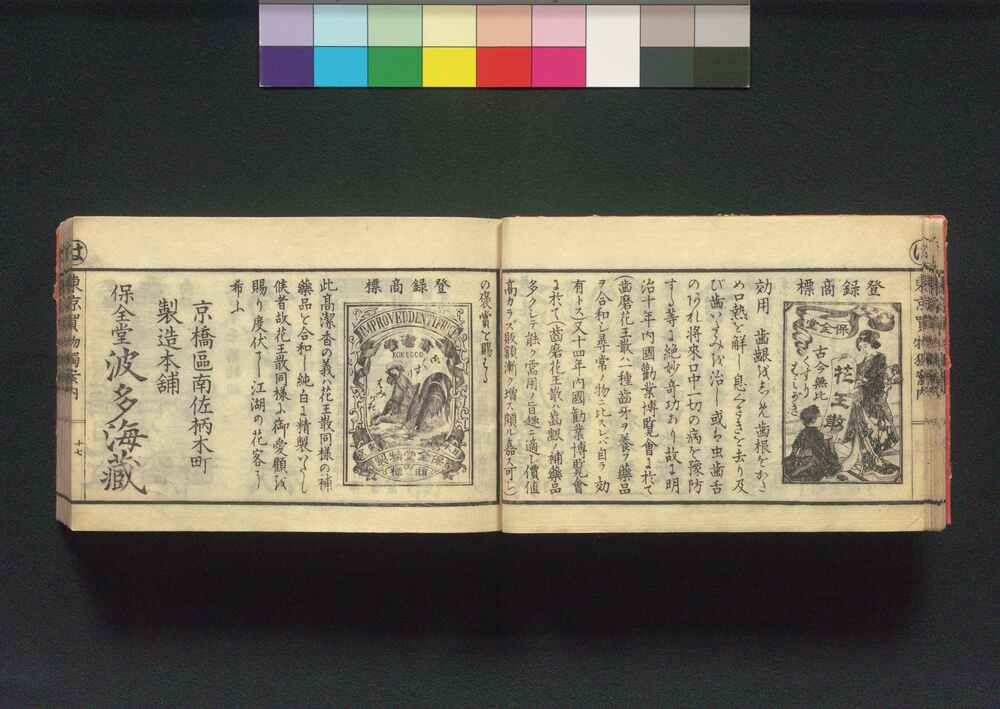 登録商標
保全堂
古今無比
花王散
はみがき
効用 歯齦を
め口熱を解し息くさきを去り及
び歯いたみを治し或も虫歯舌
のあれ将來口中一切の病を豫防
する等よ絶妙奇功あり故ま明
治十年内國勧業博覽會ま於て
(歯磨花王散ハ一種歯牙ヲ養ヲ藥品
ヲ合和シ尋常ノ物ニ比スレバ自ラ効
有トス)又十四年内國勧業博覽會
よ於て(歯磨花王散ハ歯齦ノ補藥品
多クシテ能ク需用ノ旨趣ニ適シ價値
高カラズ販額漸ク増ス頗ル嘉ス可シ)
の褒賞を賜はる
登録商標
IMPROVED DENTIFRICE
KOKECCO
はみがき
保全堂製
商標
此高潔香の義ハ花王散同様の補
藥品を合和し純白ま精製
候者故花王散同様よ御愛顧を
賜り度伏て江湖の花客ょ
希ふ
京橋區南佐柄木町
製造本舗
保全堂 波多海藏
は
東京買物獨案内
十七